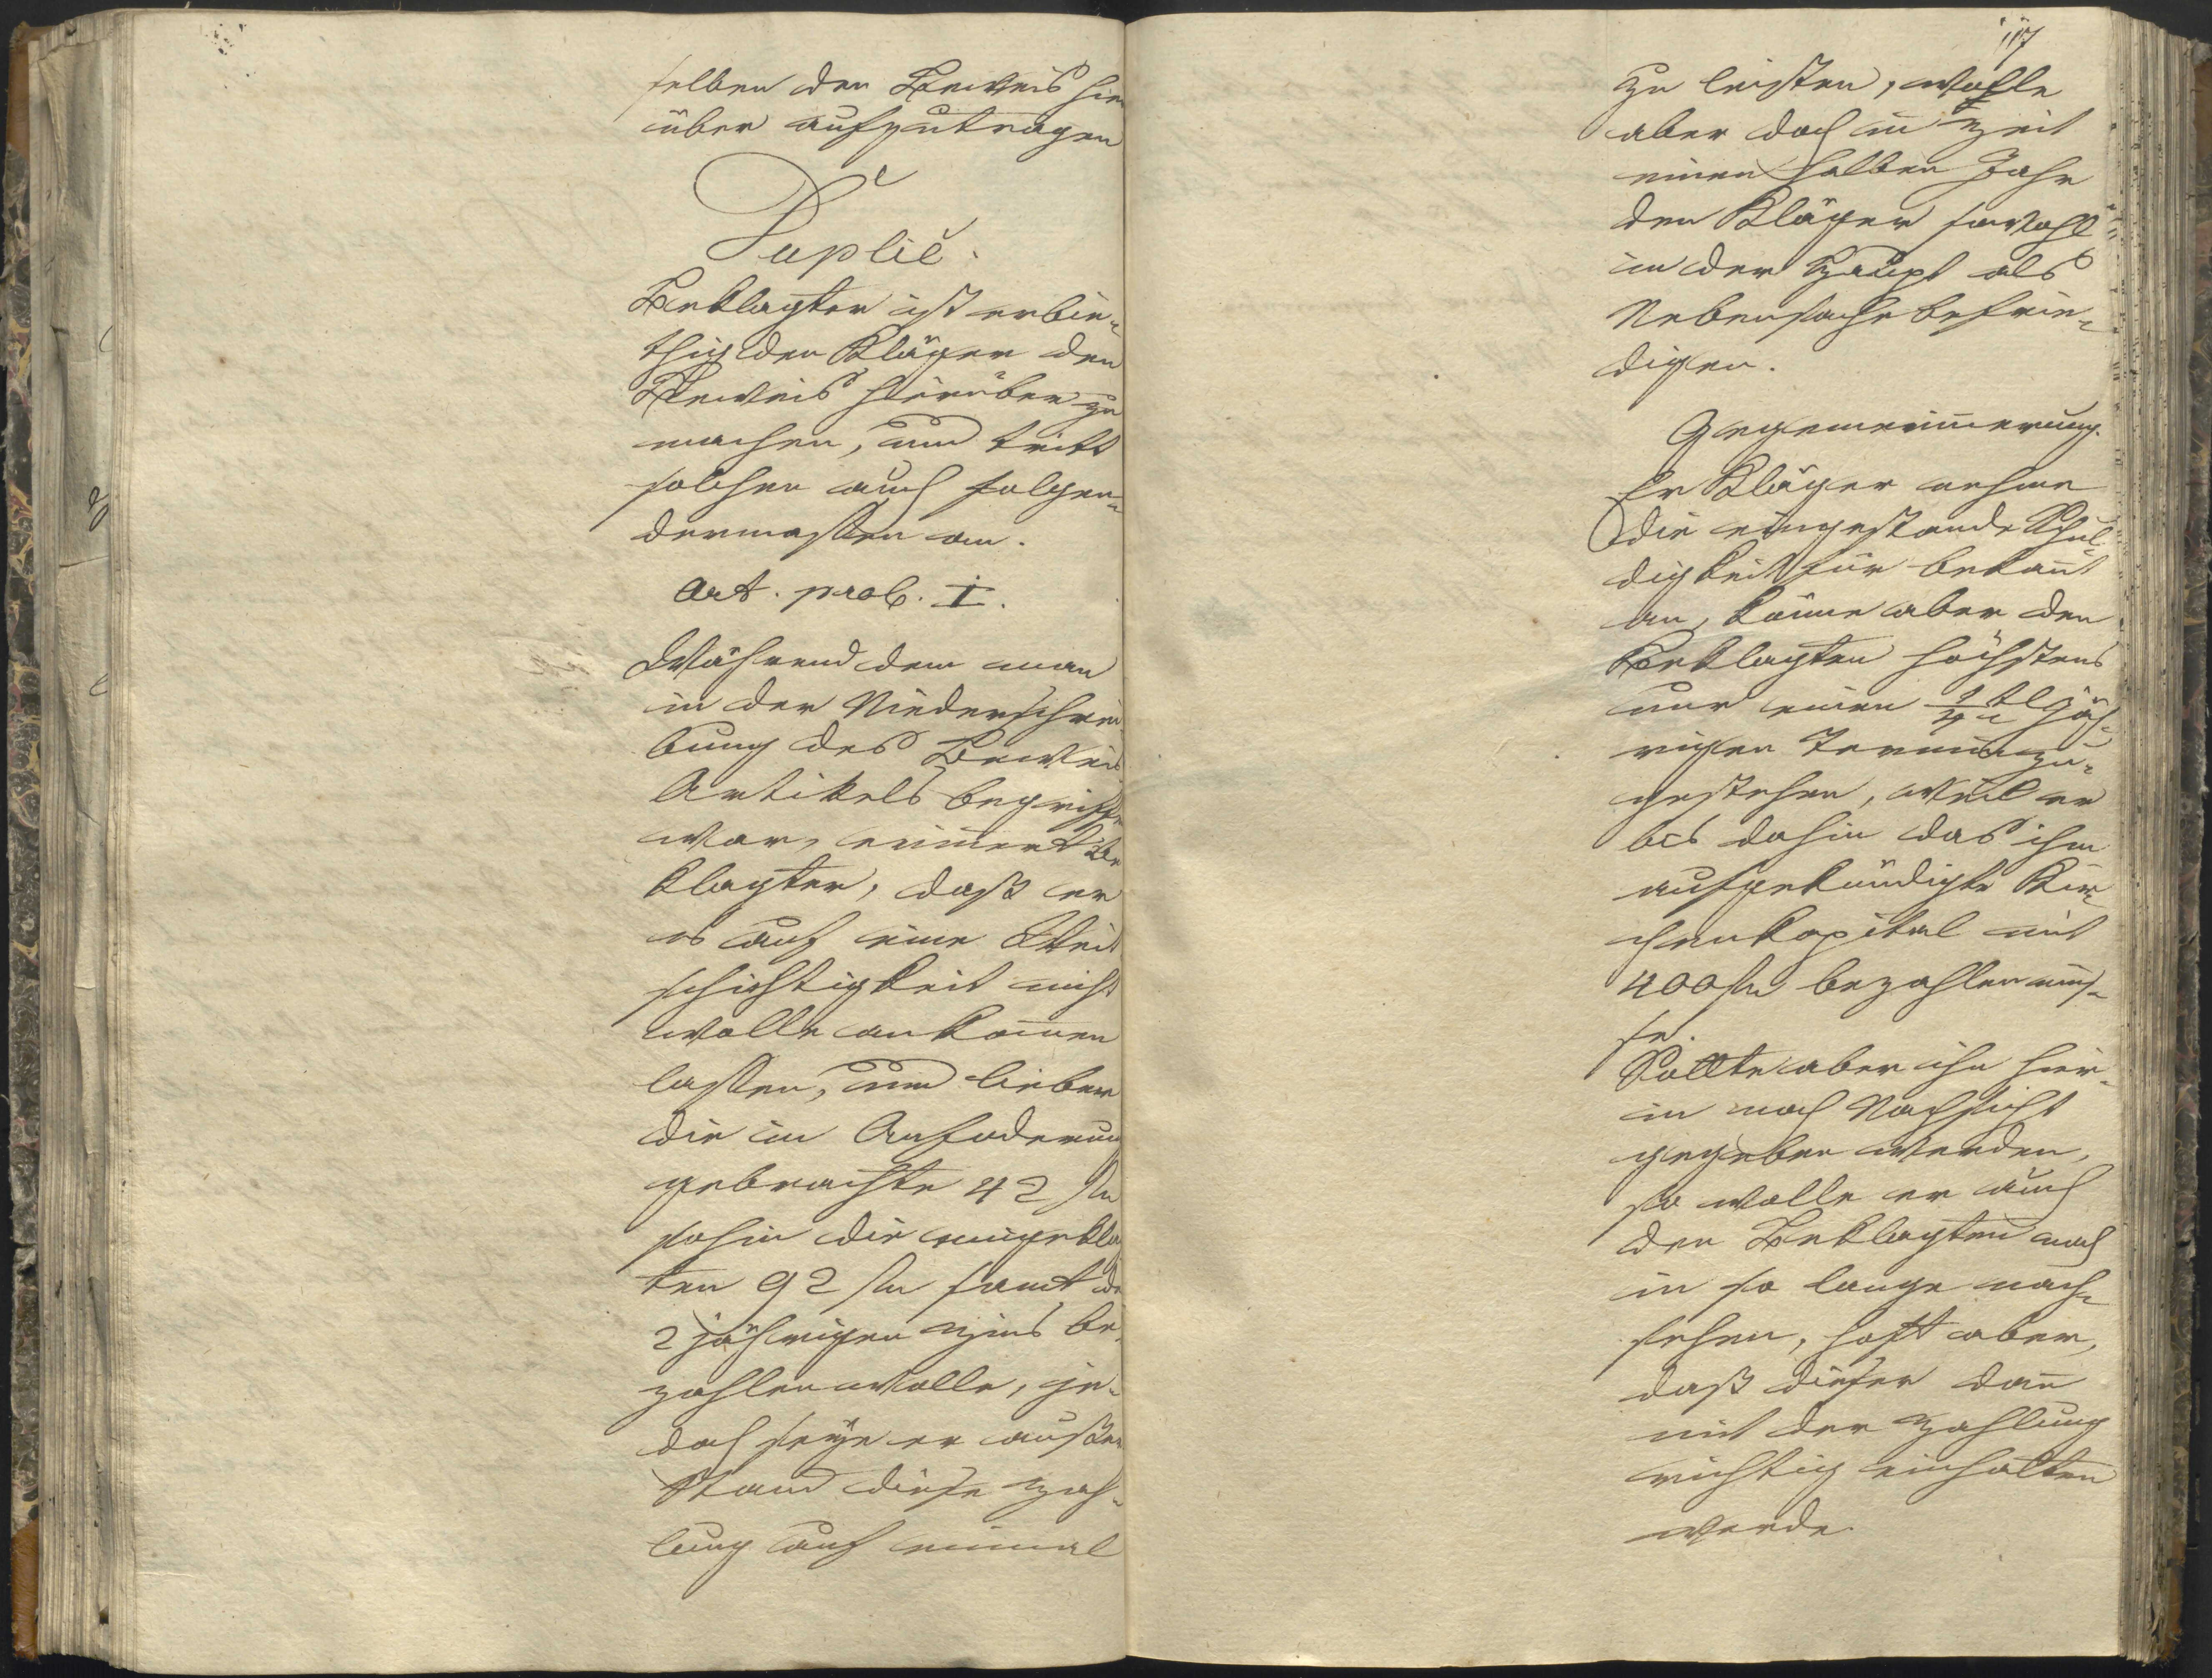 selben den Beweis hier
über aufzutragen
Duplic.
Beklagter ist erbie-
thig den Kläger den
Beweis hierüber zu
machen, und tritt
solchen auch folgen-
dermassen an.
Art. prob. I.
Während dem man
in der Niederschrei
bung des Beweis
Artikels begriffen
war, erinnert Be
klagter, daß er
es auf eine Weit
schichtigkeit nicht
wolle ankom̅en
lassen, und lieber
die in Anfoderung
gebrachte 42 fl
sohin die eingekla
ten 92 fl samt den
2 jährigen Zins be-
zahlen wolle, je-
doch seye er ausser
Stand diese Zah-
lung auf einmal
117
zu leisten, wolle
aber doch in Zeit
einen halben Jahr
den Kläger sowohl
in der Haupt als
Nebensache befrie-
digen.
Gegenerin̅erung.
Er Kläger nehme
die eingestande Schul-
digkeit für bekan̅t
an, könne aber den
Beklagten höchstens
nur einen 1/4 tl jäh-
rigen Termin zu-
gestehen, weil er
bis dahin das ihm
aufgekündigte Kir-
chenkapital mit
400 fl bezahlen müs-
se.
Sollte aber ihm hier-
in noch Nachsicht
gegeben werden,
so wolle er auch
den Beklagten noch
in so lange nach-
sehen, hoft aber,
daß dieser dan̅
mit der Zahlung
richtig einhalten
werde.